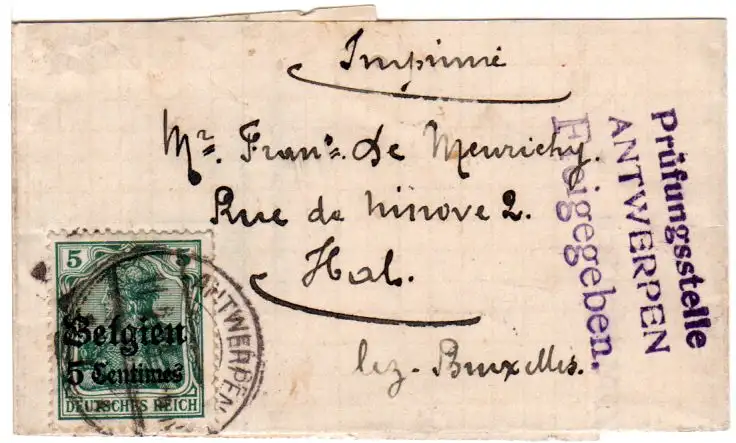 Imprimé
Mr. Franˢ. De Meurichy.
Rue de Ninove 2.
Hal.
lez-Bruxelles.
Prüfungsstelle
ANTWERPEN
Freigegeben.
5
Belgien
5 Centimes
DEUTSCHES REICH
ANTWERPEN